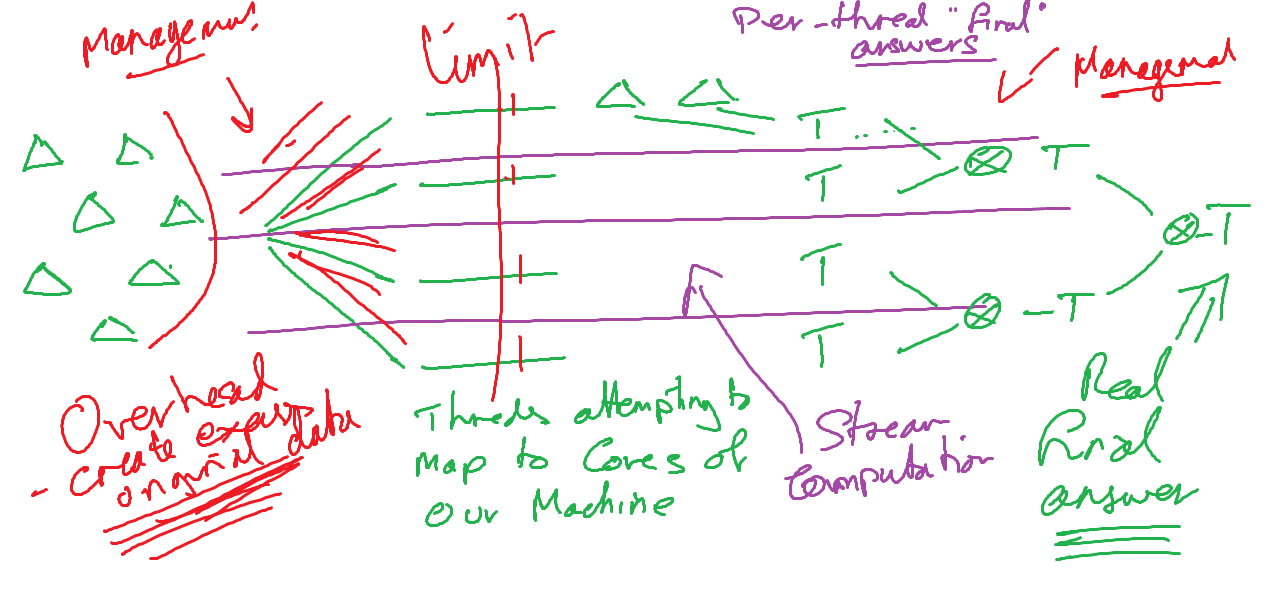 Management
Limit
Per-thred "final"
answers
Management
T ....
T
T
T
T
T
-T
-T
Overhead
- create expan
original data
Threds attempting to
Map to Cores of
our Machine
Stream
Computation
Real
final
answer